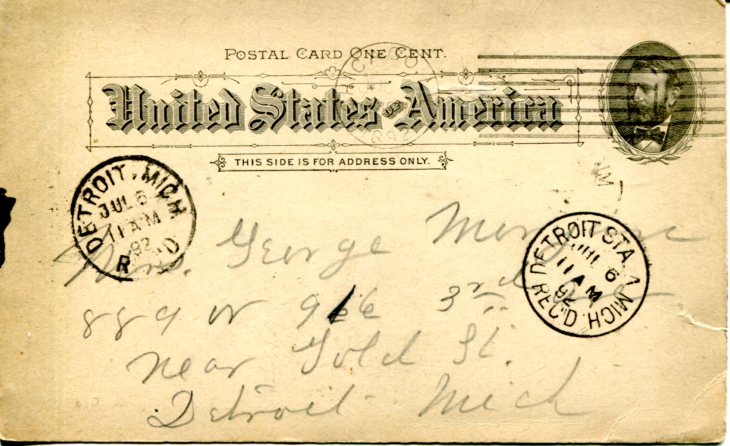 POSTAL CARD ONE CENT.
United States of America
THIS SIDE IS FOR ADDRESS ONLY.
DETROIT, MICH
JUL 6
11 AM
92
DETROIT STA. 1 MICH
JUL 6
11 AM
92
REC'D.
Mrs. George
889 or 966 3rd
near Gold St.
Detroit Mich